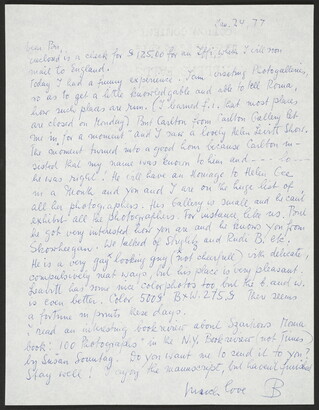 Dec. 20, 77
Dear Mr,
enclosed is a check for $ 125.00 for an which I will soon
mail to England.
Today I had a funny experience. I am visiting Photogalleries,
so as to get a little knowledgeable and able to tell Roma,
how such places are run. (I learned f.i. that most places
are closed on Monday) But Carlton from Carlton Gallery let
me in for a moment and I saw a lovely Helen Levitt Show.
The moment turned into a good hour because Carlton in-
sisted that my name was known to him and - - - - lo - -
he was right! He will have an Homage to Helen Gee
in a Month and you and I are on the huge list of
all her photographers. His Gallery is small and he can't
exhibit all the photographers. For instance, like us. But
he got very interested how you are and he knows you from
. We talked of Stryker and Rudi B. etc.
He is a very gay looking guy (not cheerful) with delicate,
compulsively neat ways, but his place is very pleasant.
Levitt has some nice color photos too, but the b. and w.
is even better. Color 500 $ B+W. 275 $ There seems
a fortune in prints these days.
I read an interesting book review about Szarkows Moma
book: 100 Photographs in the N.Y. Bookreview (not Times)
by Susan Sonntag. Do you want me to send it to you?
Stay well! I enjoy the manuscript, but haven't finished
much love B